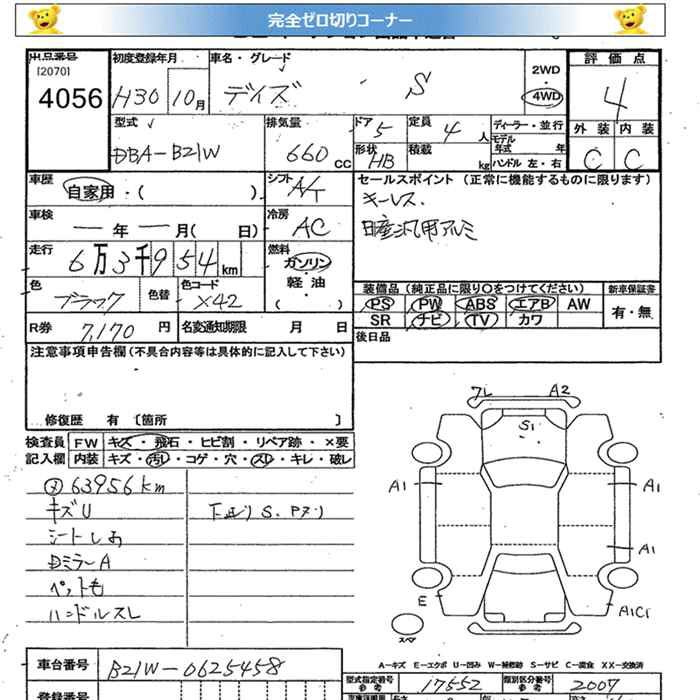 完全ゼロ切りコーナー
出品番号 初度登録年月 車名・グレード 2WD・4WD 評価点
[2070]
4056 H30 10月 デイズ S 4
外装 内装
C C
型式 排気量 ドア 定員 ディーラー・並行
DBA-B21W 660cc 5 4人 モデル年式 年
形状 積載 kg ハンドル 左・右
HB
車歴 自家用・( ) シフト A/T
セールスポイント (正常に機能するものに限ります)
キーレス
日産汎用アルミ
車検 ー年ー月( 日) 冷房 AC
走行 6万3千954km 燃料 ガソリン・軽油・( )
色 ブラック 色替 色コード X42
装備品 (純正品に限り○をつけてください) 新車保証書
PS PW ABS エアB AW 有・無
SR ナビ TV カワ
R券 7,170円 名変通知期限 月 日
後日品
注意事項申告欄(不具合内容等は具体的に記入して下さい)
修復歴 有 〔箇所 〕
検査員記入欄 FW キズ・飛石・ヒビ割・リペア跡・×要
内装 キズ・汚レ・コゲ・穴・スレ・キレ・破レ
63956km
キズU
シートしみ
ペット毛
ハンドルスレ
下廻りS.
フL A2
S1
A1 A1
A1
E A1C1
スペア
A-キズ E-エクボ U-凹み W-補修跡 S-サビ C-腐食 XX-交換済
車台番号 B21W-0625458
型式指定番号 参考 17552 類別区分番号 参考 2007
登録番号